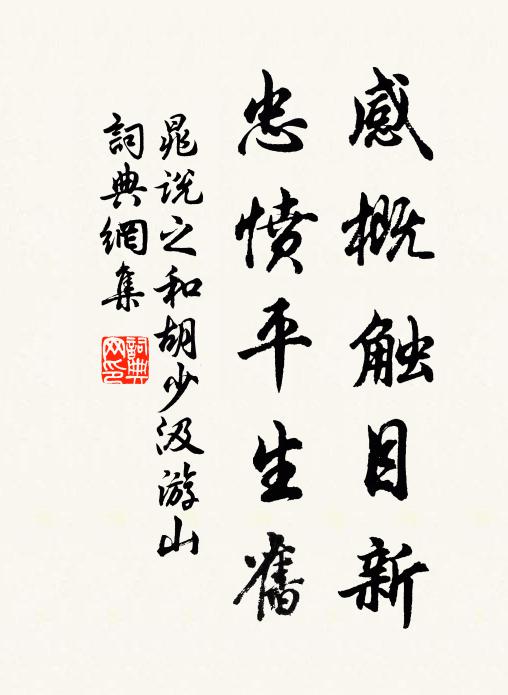 感概触目新
忠憤平生舊
晁説之和胡少汲游山
詞典網集
詞典
网印